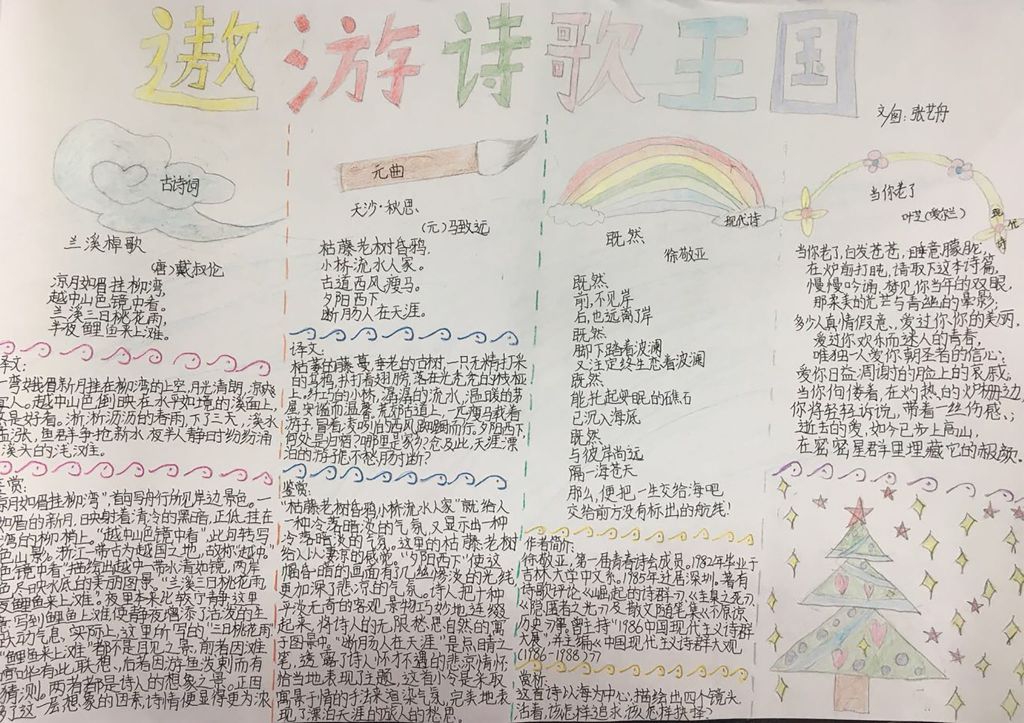 遨游诗歌王国
文/画:张艺舟
古诗词
兰溪棹歌
(唐)戴叔伦
凉月如眉挂柳湾,
越中山色镜中看。
兰溪三日桃花雨,
半夜鲤鱼来上滩。
译文:
一弯娥眉新月挂在柳湾的上空,月光清朗,凉爽
宜人。越中山色倒映在水平如境的溪面上,
煞是好看。淅淅沥沥的春雨,下了三天,溪水
猛涨,鱼群争抢新水,夜半人静时纷纷涌
溪头的浅滩。
鉴赏:
凉月如眉挂柳湾",首句写舟行所见岸边景色。一
如眉的新月,映射着清冷的
湾的柳梢上。"越中山色镜中看",此句转写
色山影。浙江一带古为越国之地,故称"越中"
色镜中看"描绘出越中一带水清如镜,两岸
色尽映水底的美丽图景。"兰溪三日桃花雨,
夜鲤鱼来上滩"。夜里本来比较宁静,这里
写到鲤鱼上滩,使静夜
跃动气息,实际上,这里所写的"三日桃花雨
"鲤鱼来上滩"都不是目见之景,前者因滩
而有此联想、后者因游鱼泼剌而有
猜测。两者都是诗人的想象之景。正因
了这一层想象的因素,诗情便显得更为浓
元曲
天沙·秋思
(元)马致远
枯藤老树昏鸦,
小桥流水人家。
古道西风瘦马。
夕阳西下,
断肠人在天涯。
译文:
枯萎的藤蔓,垂老的古树,一只无精打采
的乌鸦,扑打着翅膀,落在光秃秃的枝桠
上。纤巧的小桥,潺潺的流水,温暖的茅
屋安谧而温馨。荒郊古道上,一匹瘦马载着
游子,冒着凌冽的西风踟蹰而行。夕阳西下
何处是归宿?哪里是家乡?念及此,天涯漂
泊的游子能不愁肠寸断?
鉴赏:
"枯藤老树昏鸦小桥流水人家"就给人
一种冷落暗淡的气氛,又显示出一种
冷落暗淡的气氛。这里的枯藤、老树
给人以凄凉的感觉。"夕阳西下"使这
幅昏暗的画面有几丝惨淡的光线
更加深了悲凉的气氛。诗人把十种
平淡无奇的客观景物巧妙地连缀
起来,将诗人的无限愁思自然的寓
于图景中。"断肠人在天涯"是点睛之
笔,透露了诗人怀才不遇的悲凉情怀
恰当地表现了主题。这首小令是采取
寓景于情的手法来渲染气氛,完美地表
现了漂泊天涯的旅人的愁思。
现代诗
既然
徐敬亚
既然
前,不见岸
后,也远离了岸
既然
脚下踏着波澜
又注定终生恋着波澜
既然
能托起安眠的礁石
已沉入海底
既然
与彼岸尚远
隔一海苍天
那么,便把一生交给海吧
交给前方没有标出的航线!
作者简介:
徐敬亚,第一届青春诗会成员。1982年毕业于
吉林大学中文系。1985年迁居深圳。著有
诗歌评论《崛起的诗群》、《生臭之死》、
《隐匿者之光》及散文随笔集《不原谅
历史》等。曾主持"1986中国现代主义诗群
大展",并主编《中国现代主义诗群大观
(1986-1988)》
赏析:
这首诗以海为中心,描绘出四个镜头
活着,该怎样追求,该怎样抉择?
当你老了
叶芝(爱尔兰)
现代诗
当你老了,白发苍苍,睡意朦胧,
在炉前打盹,请取下这本诗篇,
慢慢吟诵,梦见你当年的双眼,
那柔美的光芒与青幽的晕影;
多少人真情假意,爱过你的美丽,
爱过你欢乐而迷人的青春,
唯独一人爱你朝圣者的信心;
爱你日益凋谢的脸上的哀戚,
当你佝偻着,在灼热的炉栅边,
你将轻轻诉说,带着一丝伤感:
逝去的爱,如今已步上高山,
在密密星群里埋藏它的赧颜。